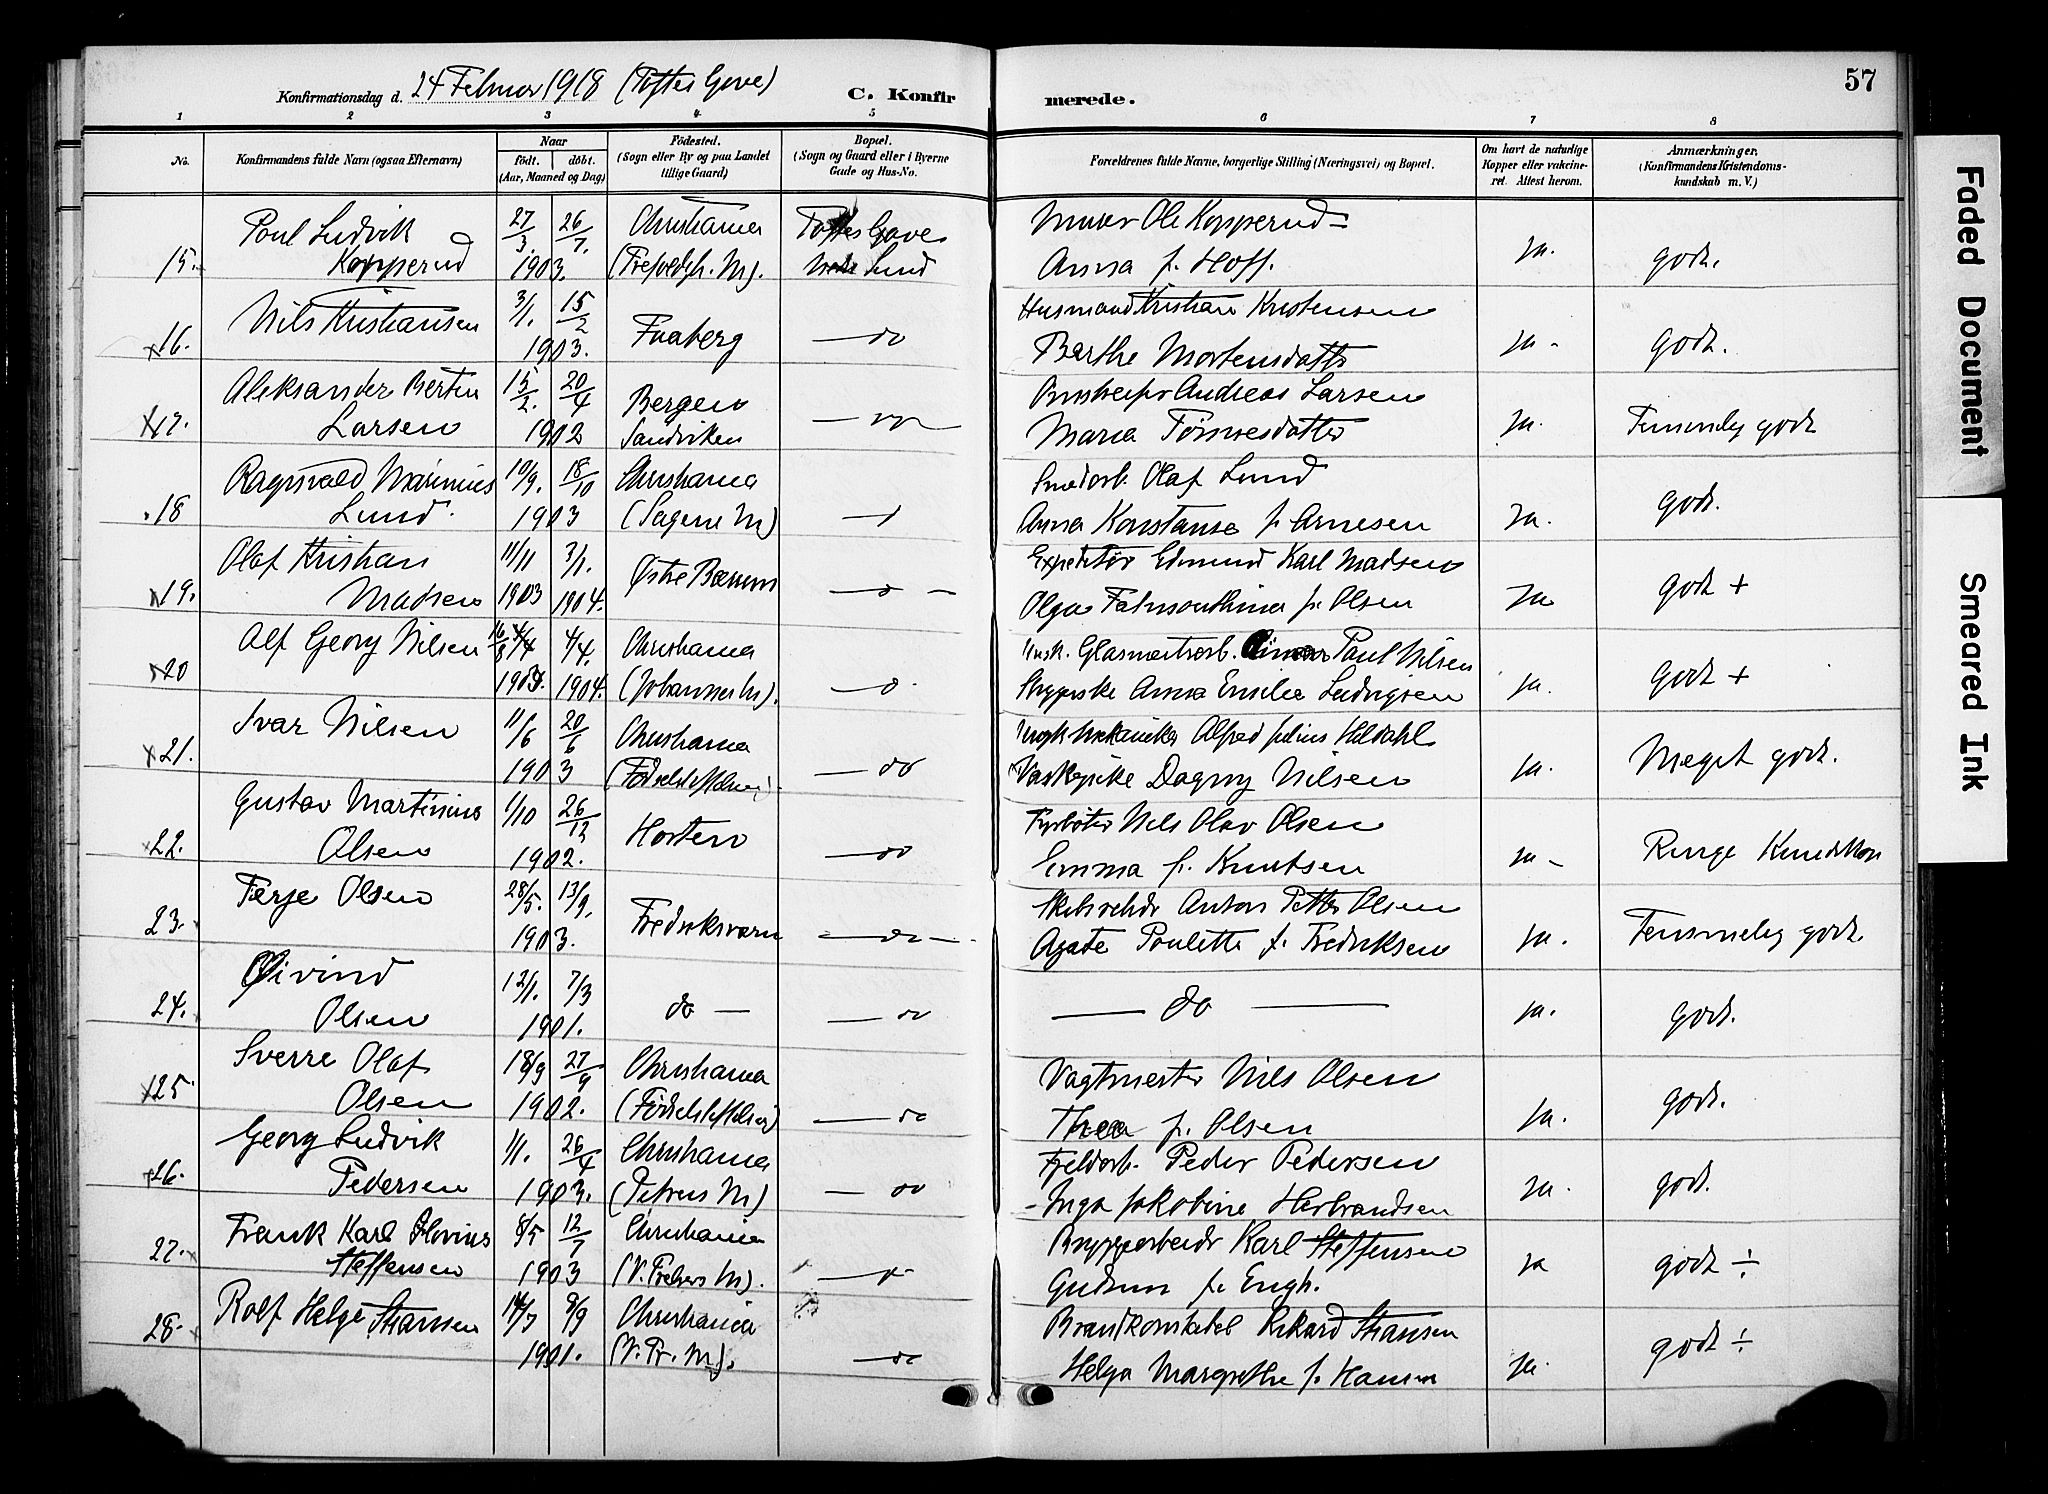 Konfirmationsdag d. 24 Februar 1918 (Toftes Gave) C. Konfirmerede. 57
1 2 3 4 5 6 7 8
No. Konfirmandens fulde Navn (ogsaa Efternavn) Naar født. døbt. (Aar, Maaned og Dag) Fødested. (Sogn eller By og paa Landet tillige Gaard) Bopæl. (Sogn og Gaard eller i Byerne Gade og Hus-No. Forældrenes fulde Navne, borgerlige Stilling (Næringsvei) og Bopæl. Om havt de naturlige Kopper eller vaccineret. Attest herom. Anmærkninger, (Konfirmandens Kristendomskundskab m. V.)
15. Poul Ludvik Kopperud 27/3. 26/7. 1903. Christiania Toftes Gave Murer Ole Kopperud - Anna f. Hoff. Ja. godt.
16. Nils Kristiansen 3/1. 15/2 1903. Faaberg do Husmand Kristian Kristensen Barthe Mortensdatter Ja - godt.
17. Aleksander Bertin Larsen 15/2. 20/4 1902 Bergen Sandviken do Andreas Larsen Maria Tønnesdatter Ja. Temmelig godt
18 Ragnvald Marinius Lund. 10/9. 18/10 1903 Christiania (Sagene M) Olaf Lund Anna Konstanse f. Arnesen Ja. godt.
19. Olaf Kristian Madsen 11/11 1903 3/1. 1904. Østre Bærum do - Expeditør Edmund Karl Madsen Olga f. Olsen Ja godt +
20 Alf Georg Nilsen 4/4. 1904. Christiania (Johannes M). do Glasmesterarb. Paul Nilsen Anna Emilie Ludvigsen Ja. Godt +
21. Ivar Nilsen 11/6 20/6 1903 Christiania (Fødselsstiftelsen) do Alfred Julius Hildahl Vaskepike Dagny Nilsen Ja. Meget godt.
22. Gustav Martinius Olsen 1/10 26/12 1902. Horten do Fyrbøter Nils Olav Olsen Emma f. Knutsen Ja - Ringe
23. Terje Olsen 28/5. 13/9. 1903. Fredriksværn do - Anton Petter Olsen Agate Poulette f. Fredriksen Ja. Temmelig godt.
24. Øivind Olsen 12/1. 7/3 1901. do - do do Ja. godt.
25 Sverre Olaf Olsen 18/9 27/9 1902. Christiania (Fødselsstiftelsen) do Vagtmester Nils Olsen Thea f. Olsen Ja. godt.
26. Georg Ludvik Pedersen 1/1. 26/4 1903. Christiania (Petrus M) do Peder Pedersen - Inga Jakobine Herbrandsen Ja. godt.
27. Frank Karl Steffensen 8/5 12/7 1903 Christiania Bryggearbeider Karl Steffensen Gudrun f. Engh. Ja godt ÷
28. Rolf Helge Stransen 14/7 8/9 1901. Christiania (V. Fr. M). do Brandkonstabel Rikard Stransen Helga Margrethe f. Hansen Ja. godt ÷
Faded Document
Smeared Ink